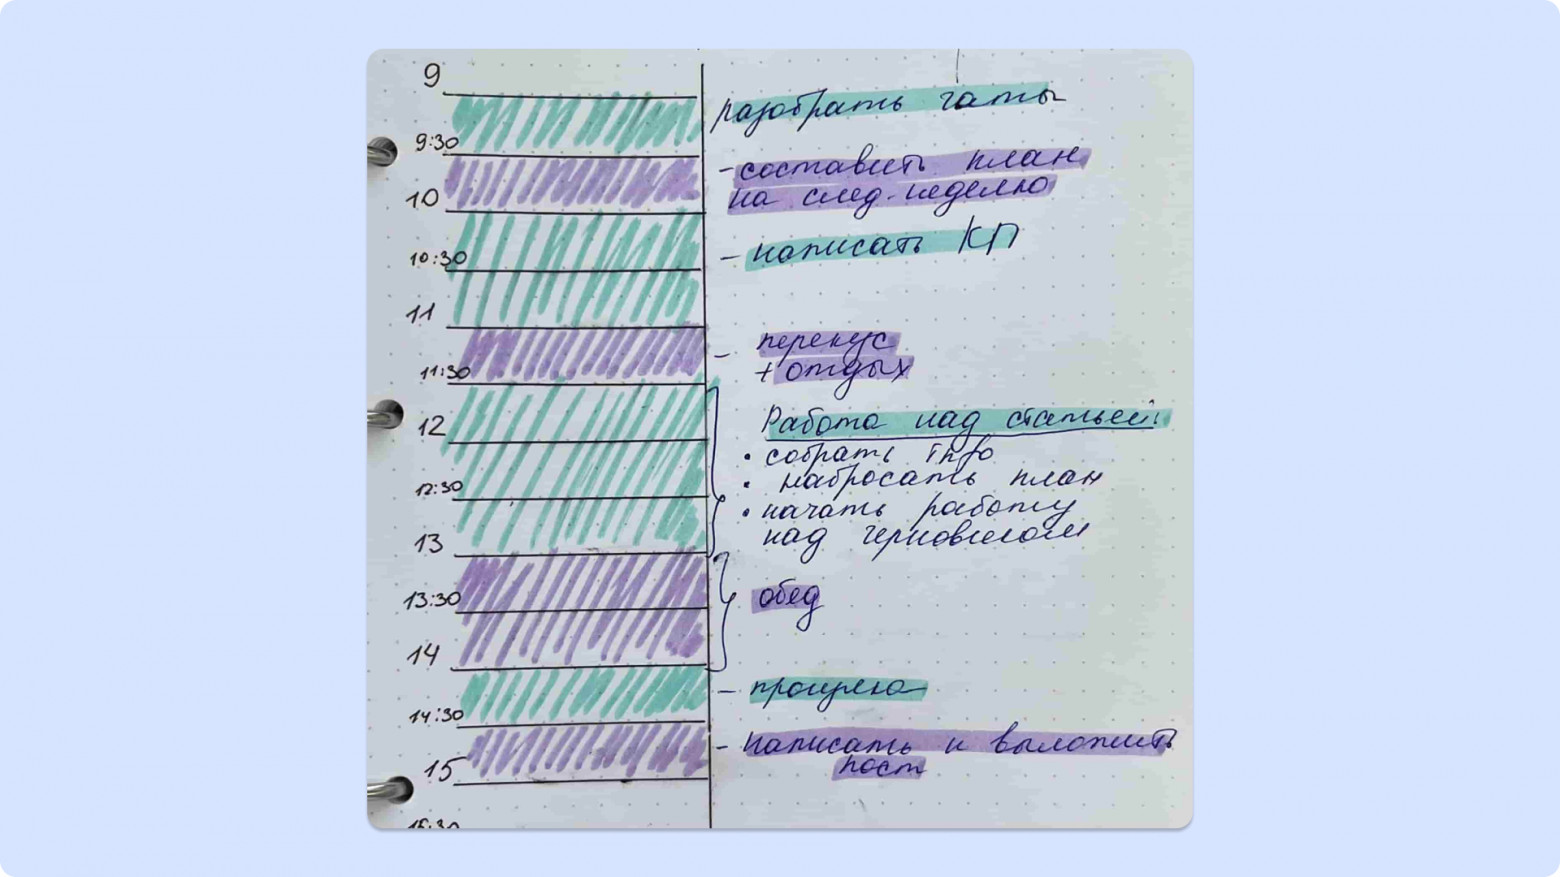 9
разобрать чаты
9:30
- составить план
на след. неделю
10
- написать КП
10:30
11
- перекус
+ отдых
11:30
Работа над статьей:
12
• собрать инфо
• набросать план
12:30
• начать работу
над черновиком
13
обед
13:30
14
- прогулка
14:30
- написать и выложить
пост
15
15:30